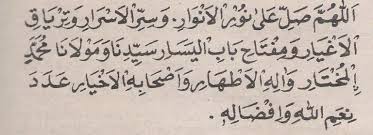 اَللّٰهُمَّ صَلِّ عَلٰى نُوْرِ الْاَنْوَارِ. وَسِرِّ الْاَسْرَارِ وَتِرْيَاقِ
الْاَغْيَارِ وَمِفْتَاحِ بَابِ الْيَسَارِ سَيِّدِنَا وَمَوْلَانَا مُحَمَّدٍ
اِلْمُخْتَارِ وَاٰلِهِ الْاَطْهَارِ وَاَصْحَابِهِ الْاَخْيَارِ عَدَدَ
نِعَمِ اللهِ وَاِفْضَالِهِ.